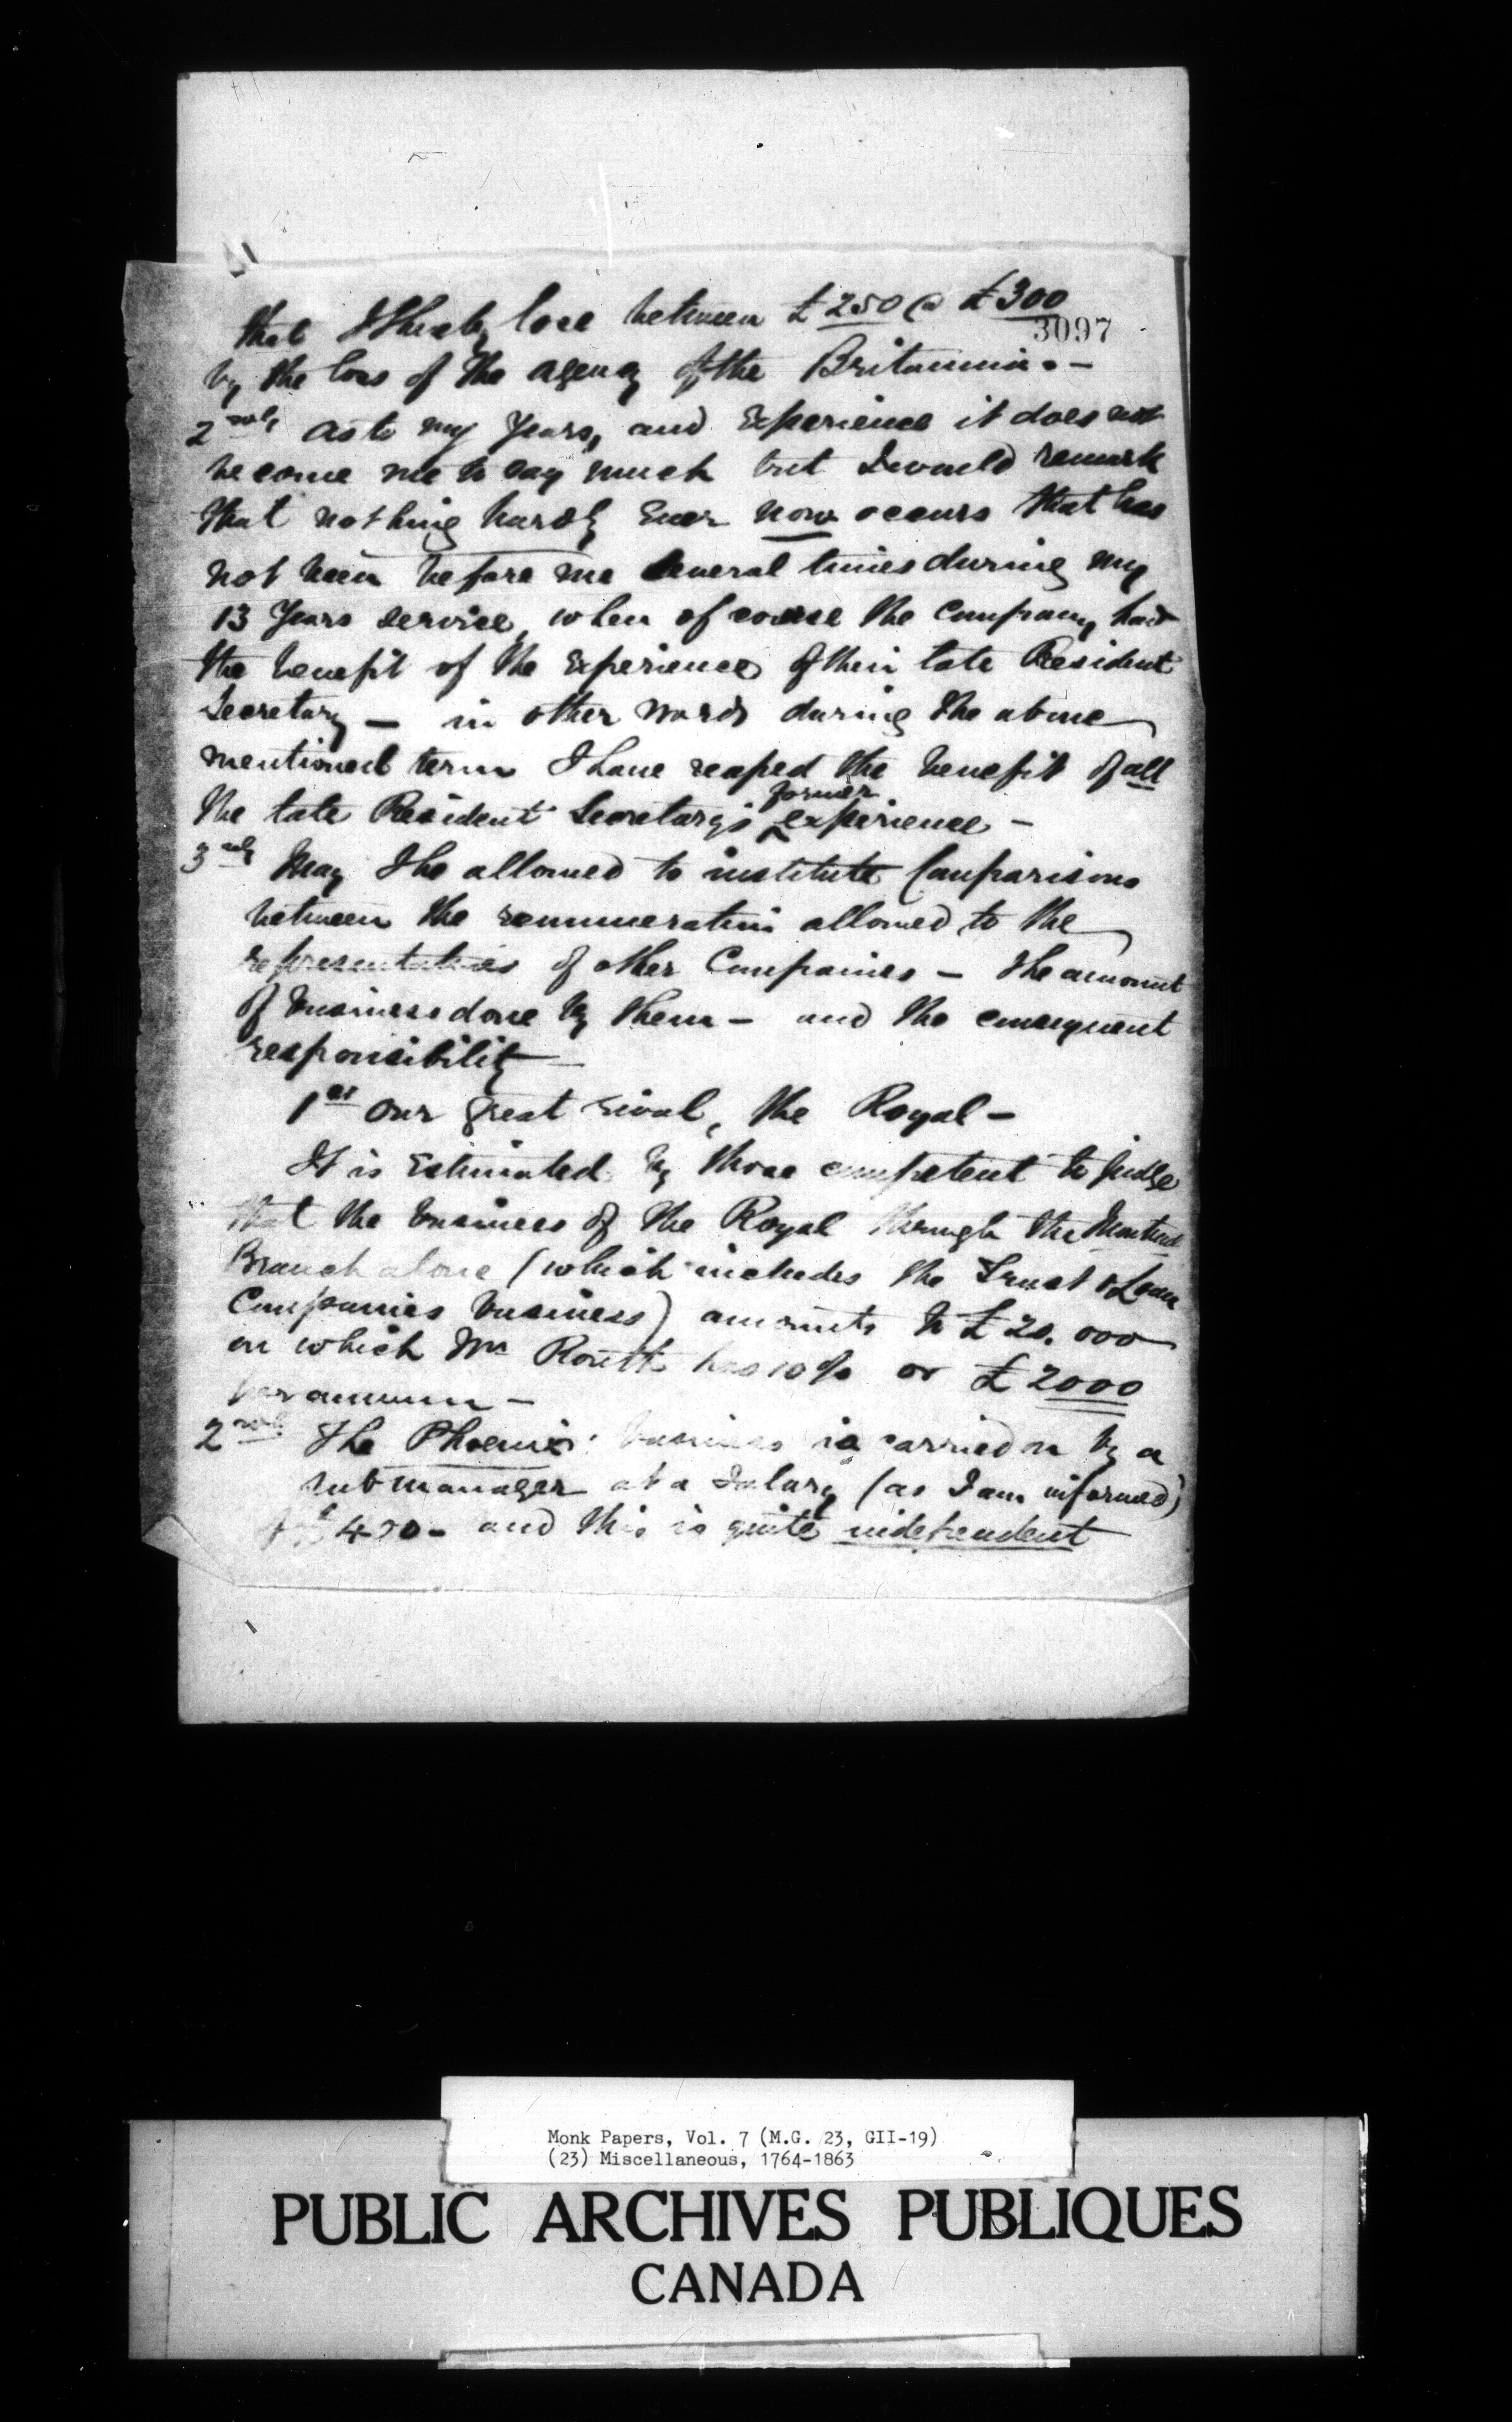 that I thereby lose between £250 @ £300
3097
by the loss of the agency of the Britannia. -
2ndly as to my years, and Experience it does not
become me to say much but I would remark
that nothing hardly Ever now occurs that has
not been before me several times during my
13 Years service, when of course the Company had
the benefit of the Experience of their late Resident
Secretary - in other words during the above
mentioned term I have reaped the benefit of all
former
the late Resident Secretary's ^ experience -
3rdly May I be allowed to institute Comparisons
between the remuneration allowed to the
representatives of other Companies - the amount
of business done by them - and the consequent
responsibility -
1st Our great rival, the Royal -
It is Estimated by those competent to judge
that the business of the Royal through the Montreal
Branch alone (which includes the Trust & Loan
Companies business) amounts to £20.000
on which Mr Routh has 10% or £2000
per annum -
2ndly The Phoenix business is carried on by a
sub manager at a Salary (as I am informed)
and this is quite independent
Monk Papers, Vol. 7 (M.G. 23, GII-19)
(23) Miscellaneous, 1764-1863
PUBLIC ARCHIVES PUBLIQUES
CANADA